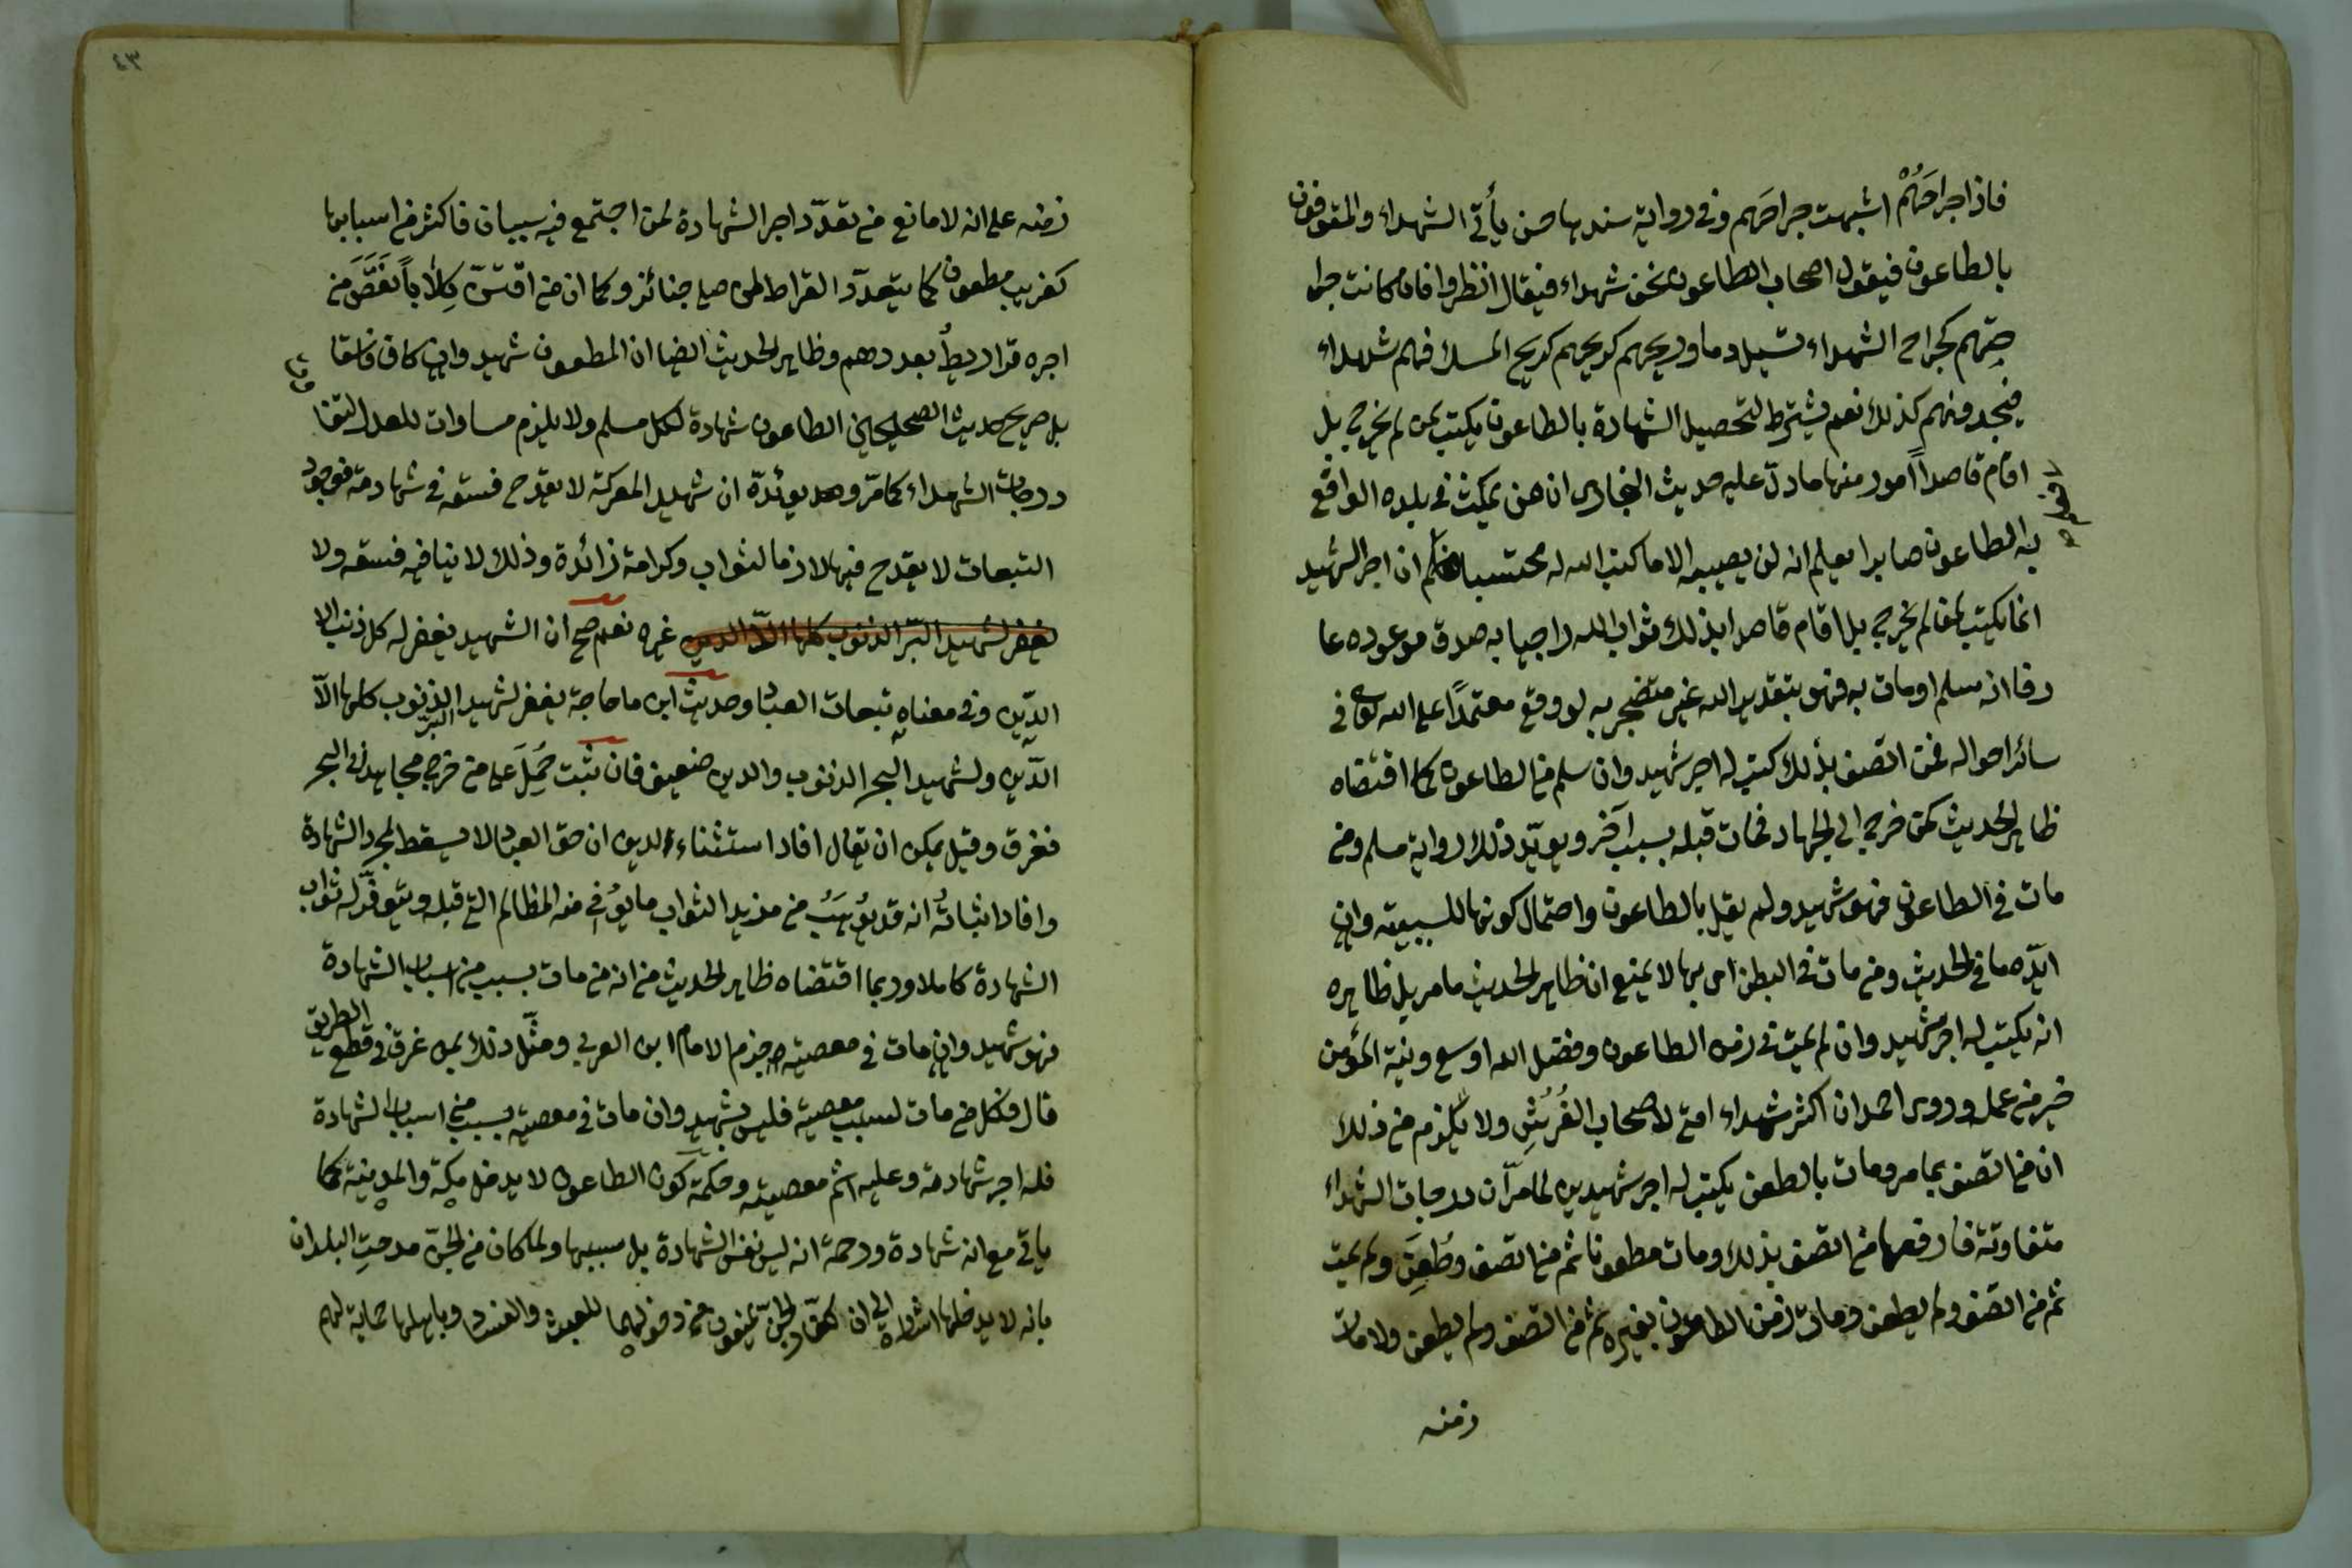 فاذا جراحَهُمْ اشبهت جراحهم وفي رواية سندها حسن يأتي الشهداء والمتوفون
بالطاعون فيقول اصحاب الطاعون نحن شهداء فيقال انظروا فان كانت جرا
حتهم كجراح الشهداء تسيل دما وريحهم كريحهم كريح المسك فهم شهداء
فيجدونهم كذلك نعم يشترط لتحصيل الشهادة بالطاعون يكتب لمن لم يخرج بل
اقام قاصداً امور منها ما دلّ عليه حديث البخاري ان من يمكث في بلده الواقع
به الطاعون صابرا يعلم انه لن يصيبه الا ما كتب الله له محتسبا ان اجر الشهيد
انما يكتب لمن لم يخرج بل اقام قاصدا بذلك ثواب الله راجيا به صدق موعوده عا
رفا ان سلم او مات به فهو بتقدير الله غير متضجر به لو وقع معتمداً على الله تعالى في
سائر احواله فمن اتصف بذلك كتب له اجر شهيد وان سلم من الطاعون كما اقتضاه
ظاهر الحديث كمن خرج الى الجهاد فمات قبله بسبب آخر ويؤيّد ذلك رواية مسلم ومن
مات في الطاعون فهو شهيد ولم يقل بالطاعون واحتمال كونها للسببية وان
ايّده ما في الحديث ومن مات في البطن اي بها لا يمنع ان ظاهر الحديث ما مر بل ظاهره
انه يكتب له اجر شهيد وان لم يمت في زمن الطاعون وفضل الله اوسع ونية المؤمن
خير من عمله وروى احمد ان اكثر شهداء امتي لاصحاب الفُرُشِ ولا يلزم من ذلك
ان من اتصف بما مر ومات بالطعن يكتب له اجر شهيدين لما مرّ ان درجات الشهداء
متفاوتة فارفعها من اتصف بذلك ومات مطعونا ثم من اتصف وطُعِنَ ولم يمت
ثم من اتصف ولم يطعن ومات زمن الطاعون بغيره ثم من اتصف ولم يطعن ولا مات
زمنه
زمنه على انه لا مانع من تعدّد اجر الشهادة لمن اجتمع فيه سببان فاكثر من اسبابها
كغريب مطعون كما يتعدّد القراط لمن صلى جنائز وكما ان من اقتنى كِلَاباً نَقَصَ من
اجره قراريط بعددهم وظاهر الحديث ايضا ان المطعون شهيد وان كان فاسقا
بل صريح حديث الصحيحين الطاعون شهادة لكل مسلم ولا يلزم مساواته للعدل لتفا
ودرجات الشهداء كما مرّ ويؤيّده ان شهيد المعركة لا يقدح فسقه في شهادته فوجود
التبعات لا يقدح فيها لانها ثواب وكرامة زائدة وذلك لا ينافيه فسقه ولا
يغفر لشهيد البرّ الذنوب كلها الّا الدين غيره نعم صح ان الشهيد يغفر له كل ذنب الا
الدّين وفي معناه تبعات العباد وحديث ابن ماجه يغفر لشهيد البرّ الذنوب كلها الّا
الدّين ولشهيد البحر الذنوب والدين ضعيف فان ثبت حُمِلَ على من خرج مجاهدا في البحر
فغرق وقيل يمكن ان يقال افاد استثناء الدين ان حق العباد لا يسقط بمجرد الشهادة
وافاد اثباته انه قد يُوهَبُ من مزيد الثواب ما يوُفي منه المظالم التي قبله ويتوفّر له ثواب
الشهادة كاملا وربما اقتضاه ظاهر الحديث من انه من مات بسبب من اسباب الشهادة
فهو شهيد وان مات في معصية جزم الامام ابن العربي ومثّل ذلك بمن غرق في قطع الطريق
قال وكل من مات بسبب معصية فليس بشهيد وان مات في معصية بسبب من اسباب الشهادة
فله اجر شهادته وعليه اثم معصيته وحكمة كون الطاعون لا يدخل مكة والمدينة كما
ياتي مع انه شهادة ورحمة انه ليس نفس الشهادة بل سببها ولما كان من الجنّ مدحت البلدان
بانه لا يدخلها اشارة الى ان كفار الجنّ يمنعون من دخولهما للعبث والفساد وباهلها حماية لهم